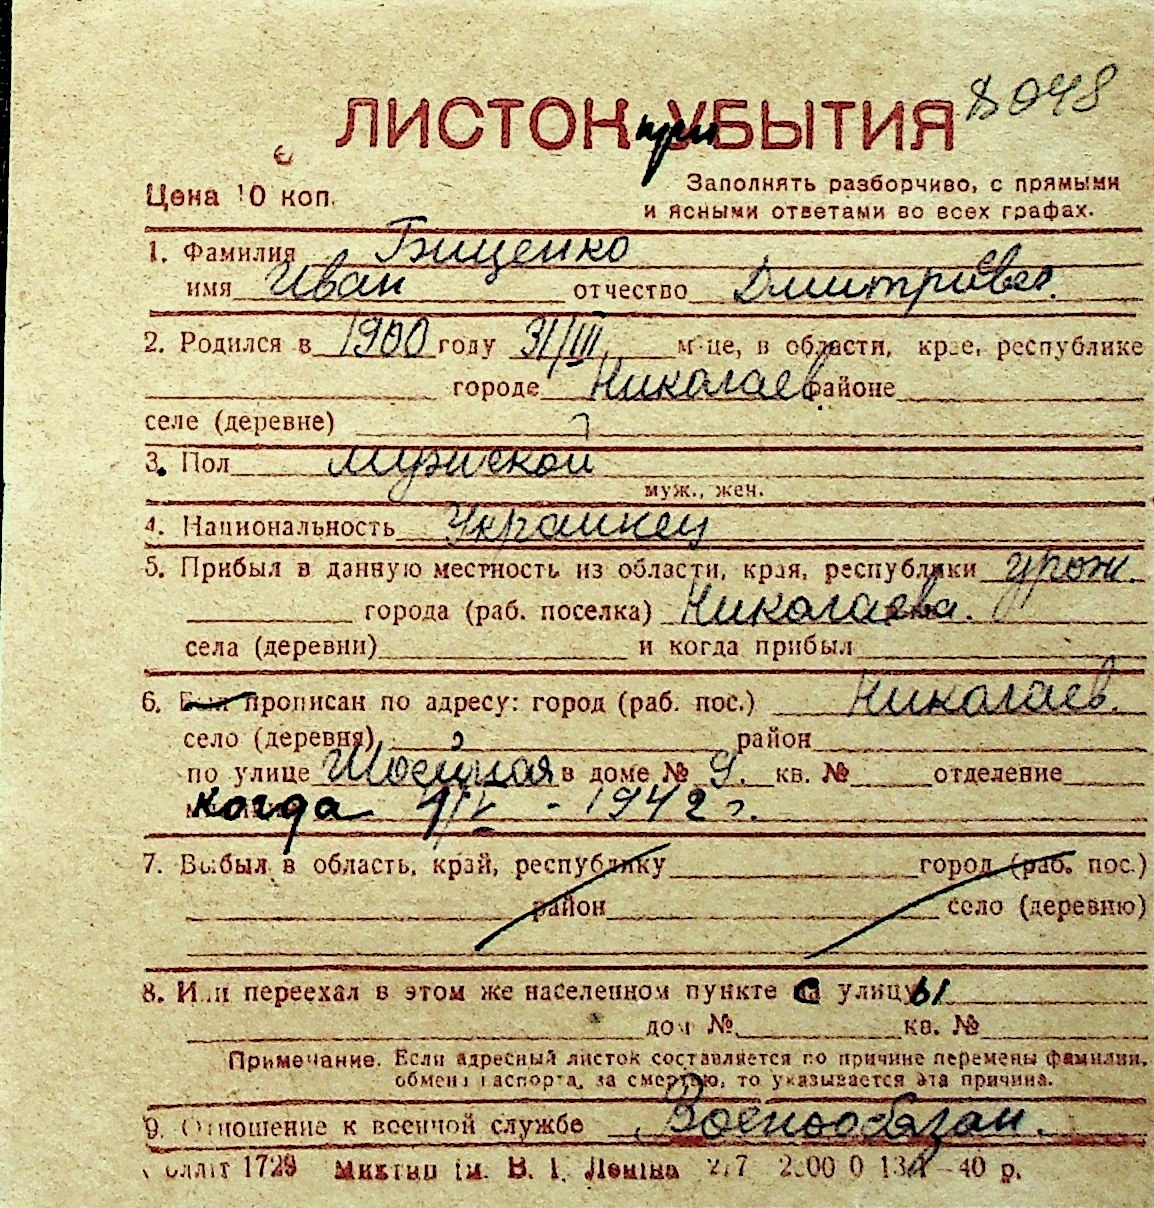 8048
ЛИСТОК при УБЫТИЯ
Цена 10 коп.
Заполнять разборчиво, с прямыми
и ясными ответами во всех графах.
1. Фамилия Бищенко
имя Иван отчество Дмитриев.
2. Родился в 1900 году 31/III м-це, в области, крае, республике
городе Николаев районе
селе (деревне)
3. Пол мужской
муж., жен.
4. Национальность Украинец
5. Прибыл в данную местность из области, края, республики урож.
города (раб. поселка) Николаева.
села (деревни) и когда прибыл
6. Был прописан по адресу: город (раб. пос.) Николаев.
село (деревня) район
по улице в доме № 9. кв. № отделение
когда 1942 г.
7. Выбыл в область, край, республику город (раб. пос.)
район село (деревню)
8. Или переехал в этом же населенном пункте с улицы
дом № кв. №
Примечание. Если адресный листок составляется по причине перемены фамилии,
обмена паспорта, за смертью, то указывается эта причина.
9. Отношение к военной службе Военнообязан.
1729 Миктип Ім. В. І. Леніна 40 р.